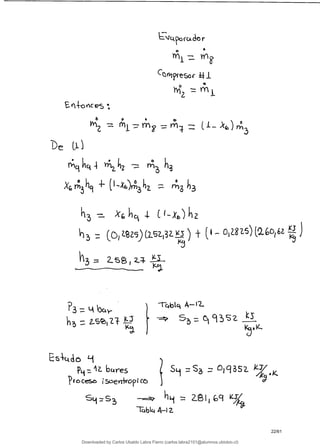 Evaporador
ṁ1 = ṁ8
Compresor #1
ṁ2 = ṁ1
Entonces:
ṁ2 = ṁ1 = ṁ8 = ṁ7 = (1 - X6) ṁ3
De (1)
ṁ9 h9 + ṁ2 h2 = ṁ3 h3
X6 ṁ3 h9 + (1-X6) ṁ3 h2 = ṁ3 h3
h3 = X6 h9 + (1-X6) h2
h3 = (0,2825)(252,32 KJ/Kg) + (1 - 0,2825)(260,62 KJ/Kg)
h3 = 258,27 KJ/Kg
P3 = 4 bar
h3 = 258,27 KJ/Kg
Tabla A-12
⇒ S3 = 0,9352 KJ/Kg.K
Estado 4
P4 = 12 bares
Proceso isoentropico
S4 = S3 = 0,9352 KJ/Kg.K
S4 = S3 → h4 = 281,69 KJ/Kg
Tabla A-12
22/61
Downloaded by Carlos Ubaldo Labra Fierro (carlos.labra2101@alumnos.ubiobio.cl)